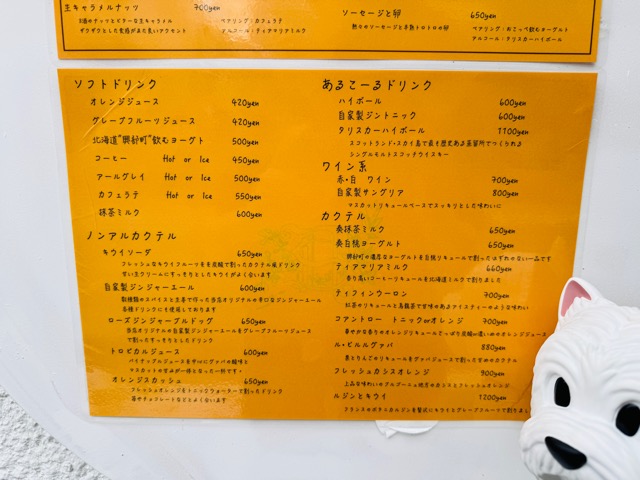 生キャラメルナッツ 700yen
3種のナッツとビターな生キャラメル
ザクザクとした食感がまた良いアクセント
ペアリング：カフェラテ
アルコール：ティアマリアミルク
ソーセージと卵 650yen
熱々のソーセージと半熟トロトロの卵
ペアリング：おこっぺ飲むヨーグルト
アルコール：タリスカーハイボール
ソフトドリンク
オレンジジュース 420yen
グレープフルーツジュース 420yen
北海道"興部町"飲むヨーグト 500yen
コーヒー Hot or Ice 450yen
アールグレイ Hot or Ice 500yen
カフェラテ Hot or Ice 550yen
抹茶ミルク 600yen
ノンアルカクテル
キウイソーダ 650yen
フレッシュなキウイフルーツを炭酸で割ったカクテル風ドリンク
甘い生クリームにすっきりとしたキウイがよく合います
自家製ジンジャーエール 600yen
数種類のスパイスと生姜で作った当店オリジナルの辛口なジンジャーエール
各種ドリンクにも使用しております
ローズジンジャーブルドッグ 650yen
当店オリジナルの自家製ジンジャーエールをグレープフルーツジュース
で割ったすっきりとしたドリンク
トロピカルジュース 600yen
パイナップルジュースを中心にグァバの酸味と
マスカットの甘みが一体となった一杯です・
オレンジスカッシュ 650yen
フレッシュオレンジをトニックウォーターで割ったドリンク
苺やチョコレートなどとよく合います
あるこーるドリンク
ハイボール 600yen
自家製ジントニック 600yen
タリスカーハイボール 1100yen
スコットランド・スカイ島で最も歴史ある蒸留所でつくられる
シングルモルトスコッチウイスキー
ワイン系
赤・白 ワイン 700yen
自家製サングリア 800yen
マスカットリキュールベースでスッキリとした味わいに
カクテル
奏抹茶ミルク 650yen
奏白桃ヨーグルト 650yen
興部町の濃厚なヨーグルトを白桃リキュールで割ったはずれのない一品です
ティアマリアミルク 660yen
香り高いコーヒーリキュールを北海道ミルクで割りました
ティフィンウーロン 700yen
紅茶のリキュールと烏龍茶で甘味のあるアイスティーのような味わい
コアントロー トニックorオレンジ 700yen
華やかな香りのオレンジリキュールでさっぱり炭酸or濃いめのオレンジジュース
ル・ビルルグァバ 880yen
黒とりんごのリキュールをグァバジュースで割った甘めのカクテル
フレッシュカシスオレンジ 900yen
上品な味わいのブルゴーニュ地方のカシスとフレッシュオレンジ
ルジンとキウイ 1200yen
フランスのボタニカルジンを贅沢にキウイとグレープフルーツで割りまし